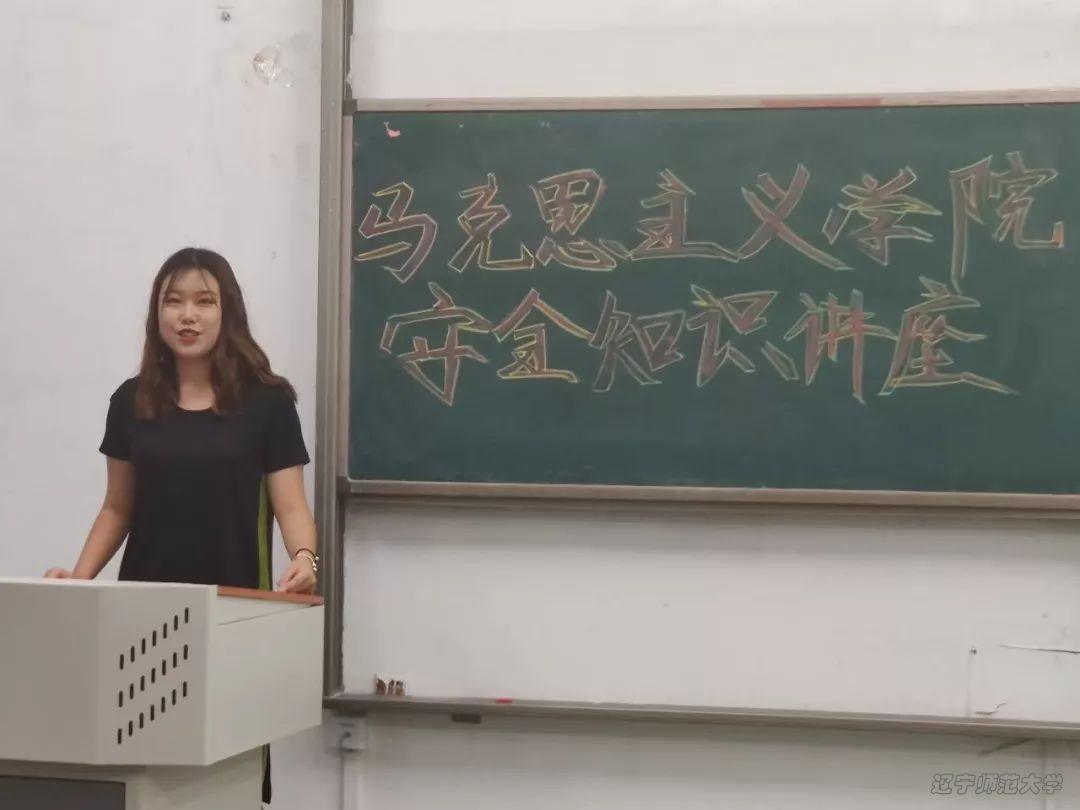 马克思主义学院
安全知识讲座
辽宁师范大学